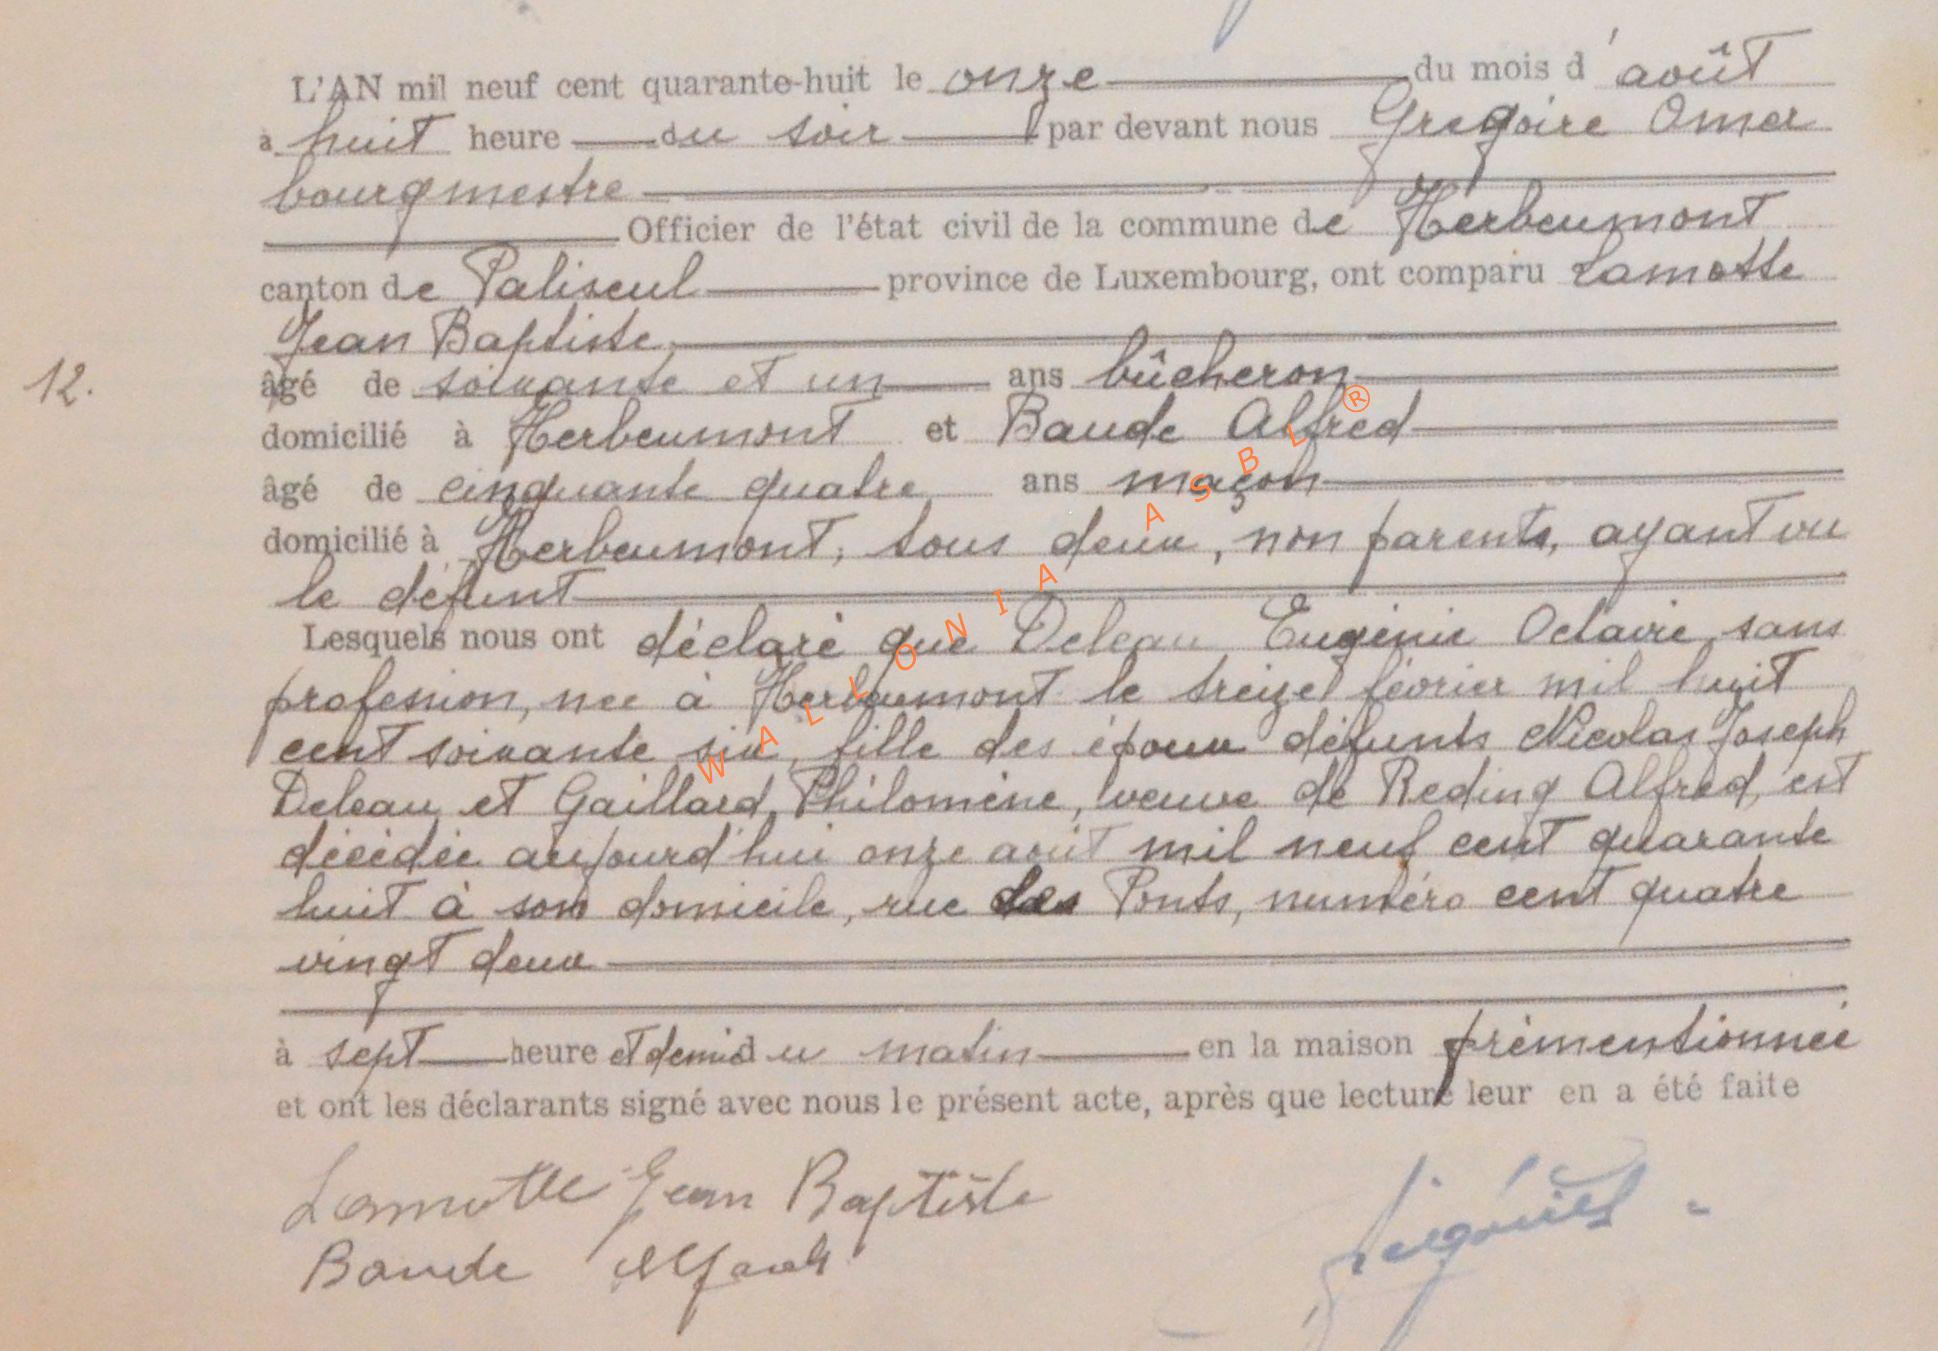 L'AN mil neuf cent quarante-huit le onze du mois d'août
à huit heure du soir par devant nous Gregoire Omer
bourgmestre
Officier de l'état civil de la commune de Herbeumont
canton de Paliseul province de Luxembourg, ont comparu Lamotte
Jean Baptiste,
12.
âgé de soixante et un ans bûcheron
domicilié à Herbeumont et Baude Alfred
âgé de cinquante quatre ans maçon
domicilié à Herbeumont, tous deux, non parents, ayant vu
le défunt
Lesquels nous ont déclaré que Deleau Eugénie Octavie, sans
profession, née à Herbeumont le treize février mil huit
cent soixante six, fille des époux défunts Nicolas Joseph
Deleau et Gaillard Philomène, veuve de Reding Alfred, est
décédée aujourd'hui onze août mil neuf cent quarante
huit à son domicile, rue des Ponts, numéro cent quatre
vingt deux
à sept heure et demie du matin en la maison prémentionnée
et ont les déclarants signé avec nous le présent acte, après que lecture leur en a été faite
Lamotte Jean Baptiste
Baude Alfred
WALLONIA ASBL ®